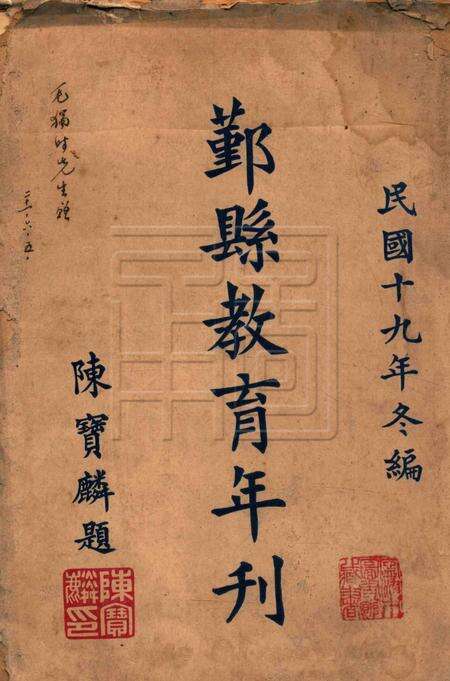 民國十九年冬編
鄞縣教育年刊
陳寶麟題
陳寶麟印
先生贈
二十、六、五、